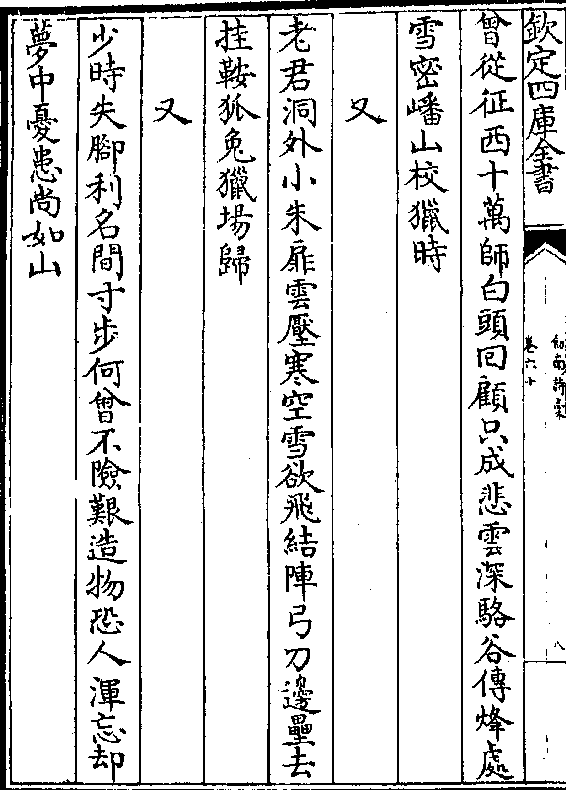 欽定四庫全書
劍南詩稾
卷六十
八
曾從征西十萬師白頭回顧只成悲雲深駱谷傳烽處
雪密嶓山校獵時
又
老君洞外小朱扉雲壓寒空雪欲飛結陣弓刀邊壘去
挂鞍狐兔獵場歸
又
少時失腳利名間寸步何曾不險艱造物恐人渾忘却
夢中憂患尚如山